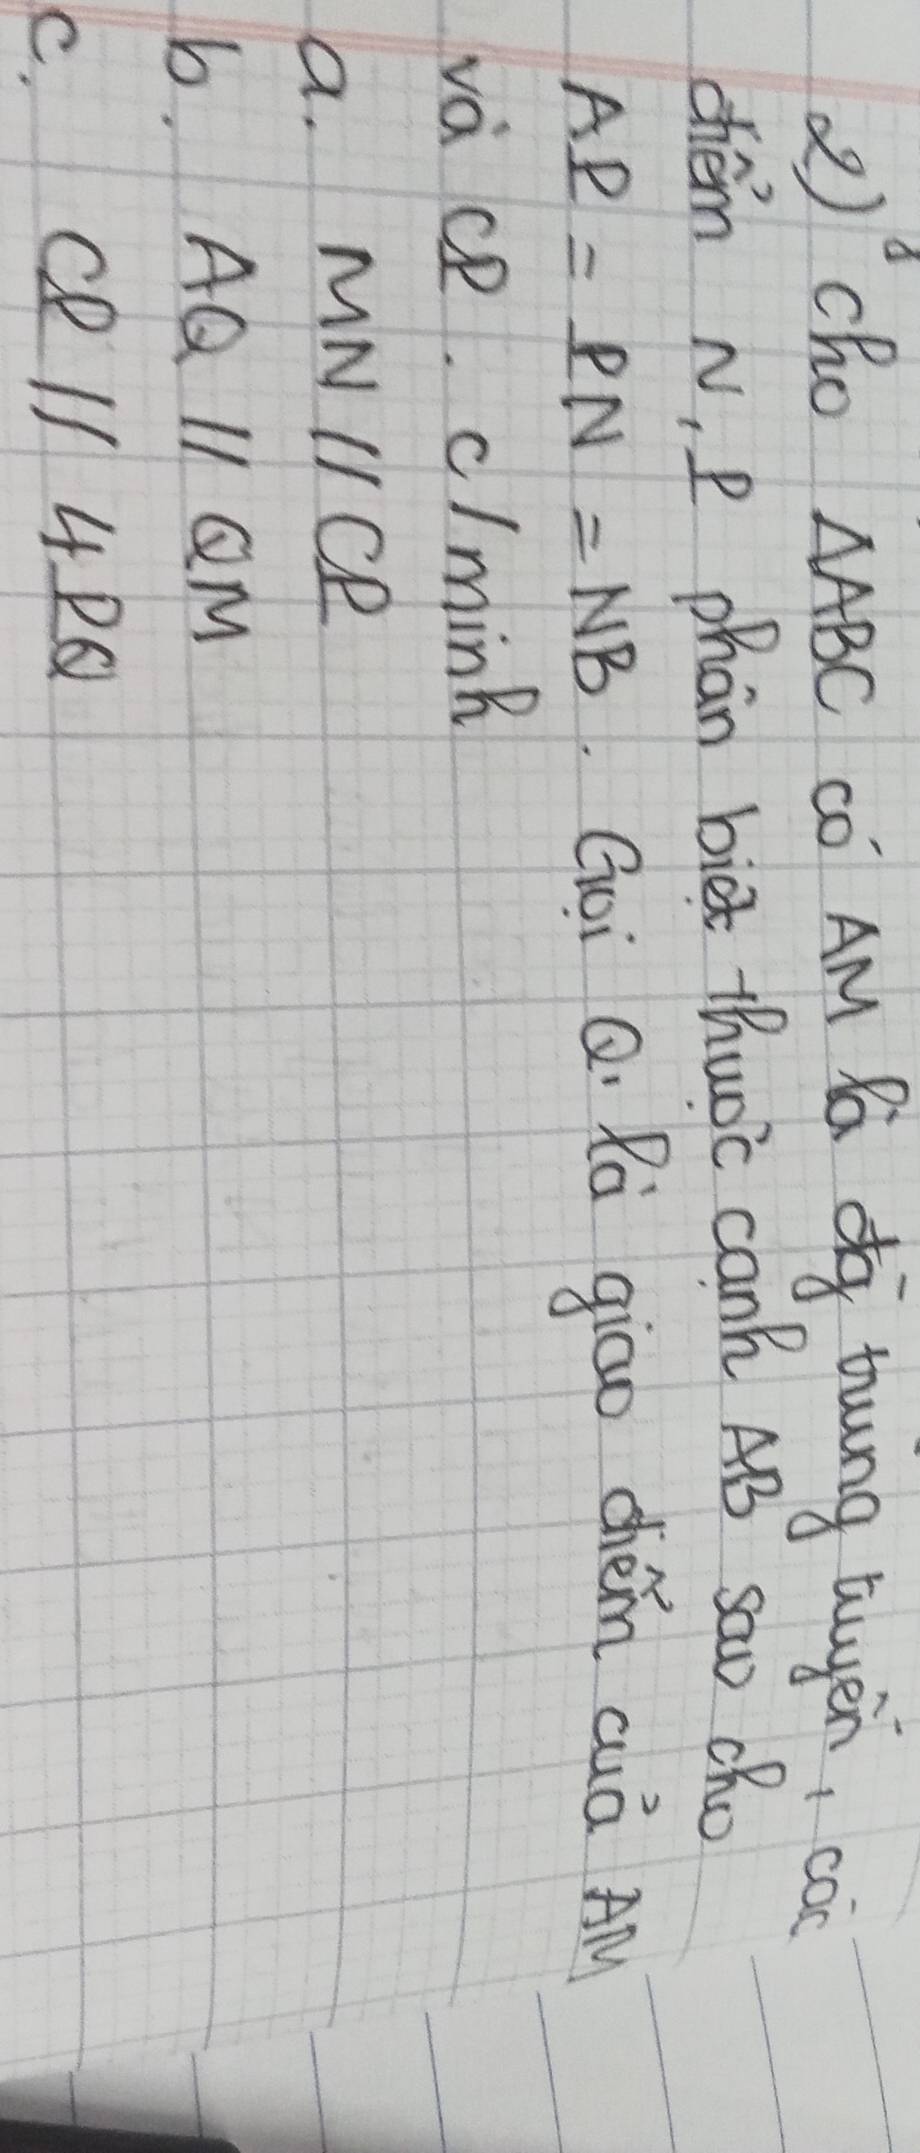 2) cho ΔABC có AM là đg trung tuyến, các
điểm N, P phân biệt thuộc cạnh AB sao cho
AP = PN = NB. Gọi Q là giao điểm của AM
và CP. c/minh
a. MN // CP
b. AQ // QM
c. CP // 4PQ